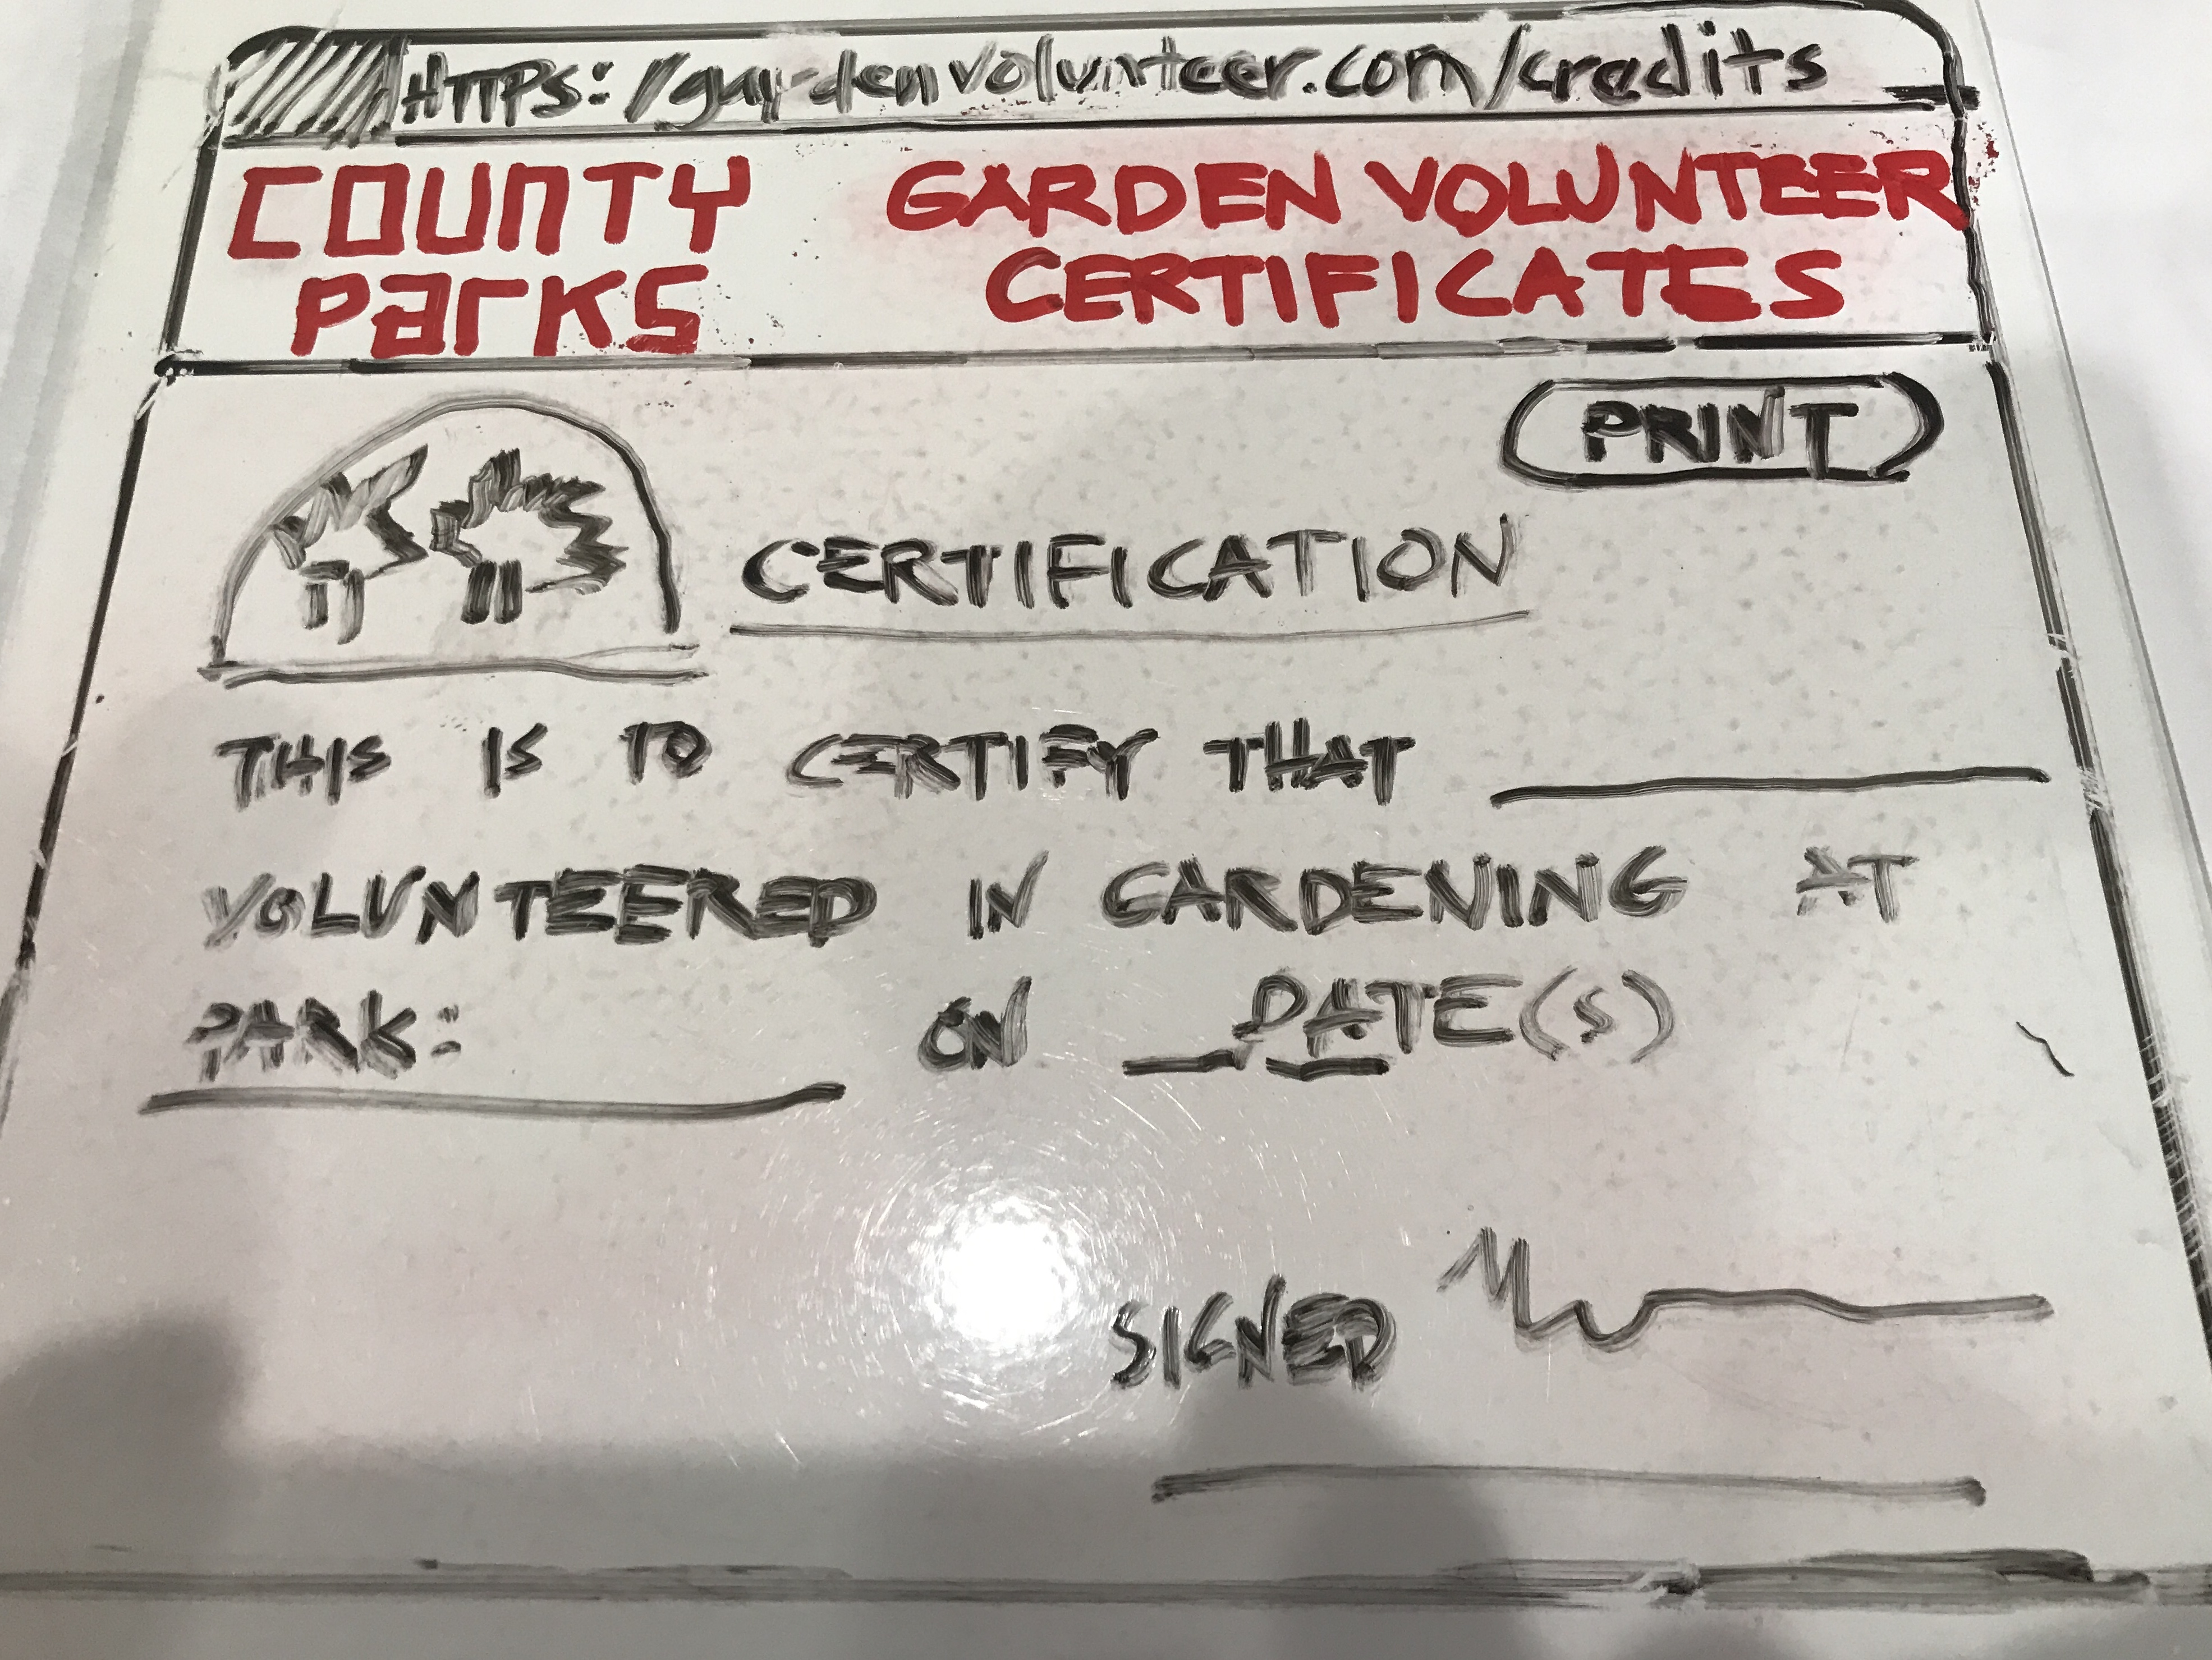 HTTPS://gardenvolunteer.com/credits
COUNTY PARKS
GARDEN VOLUNTEER CERTIFICATES
PRINT
CERTIFICATION
THIS IS TO CERTIFY THAT
VOLUNTEERED IN GARDENING AT
PARK: ON DATE(S)
SIGNED